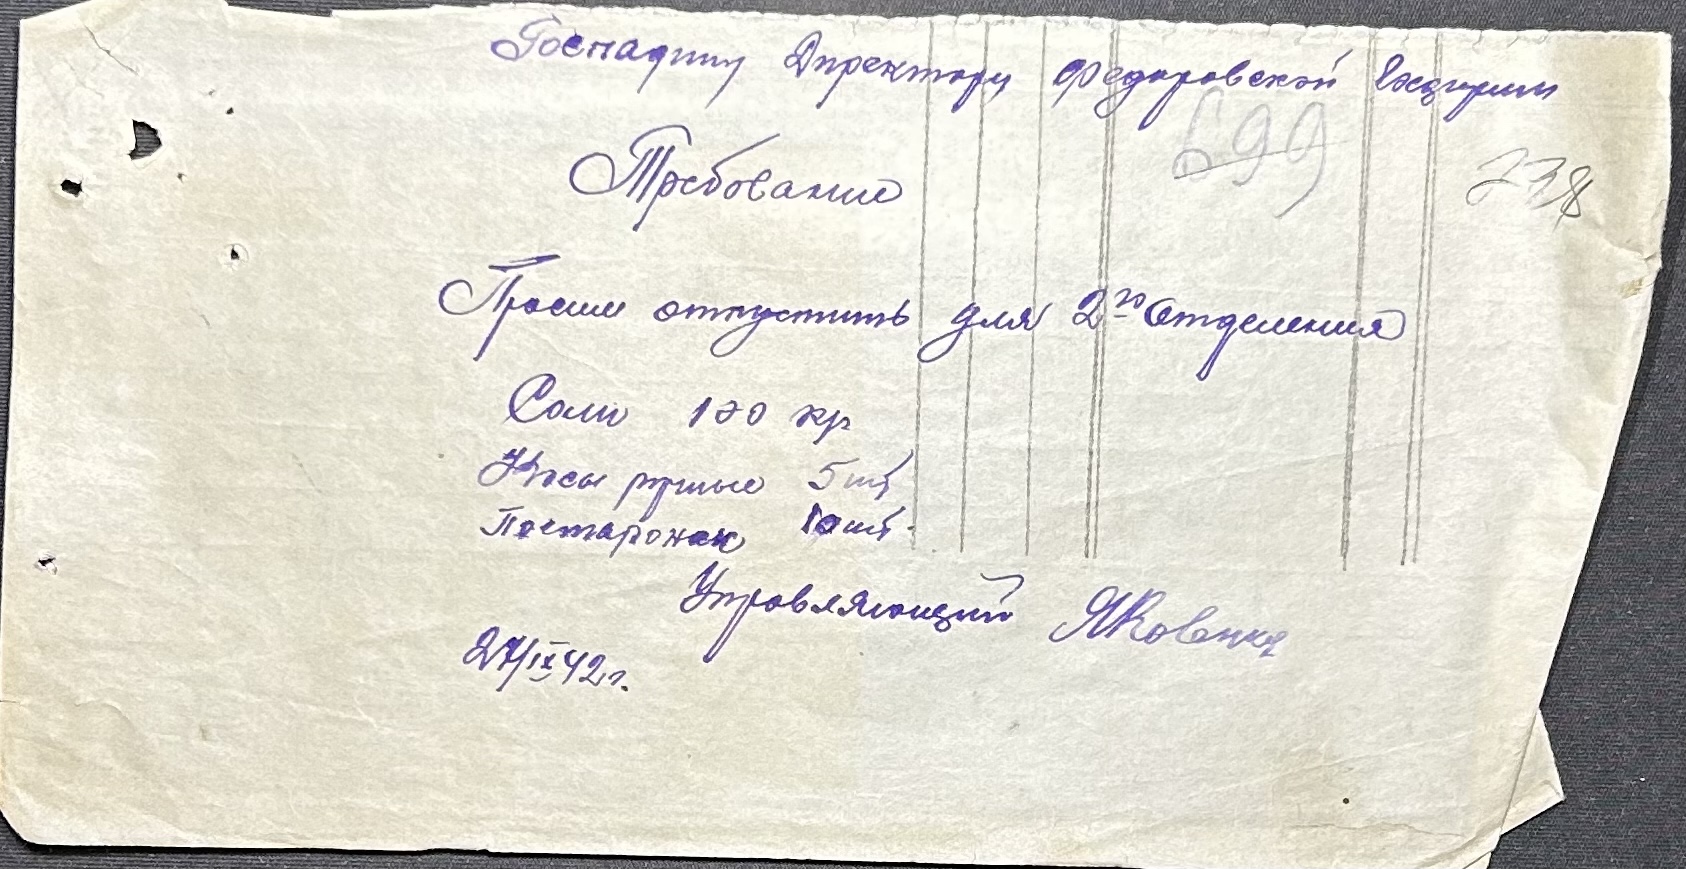 Госпадину Директору Федоровской Экциции
699
738
Требование
Просим отпустить для 2го Отделения
Соли 100 кг
Косы ручные 5 шт
Постаронок 10 шт.
Управляющий Яковенко
27/IX 42 г.